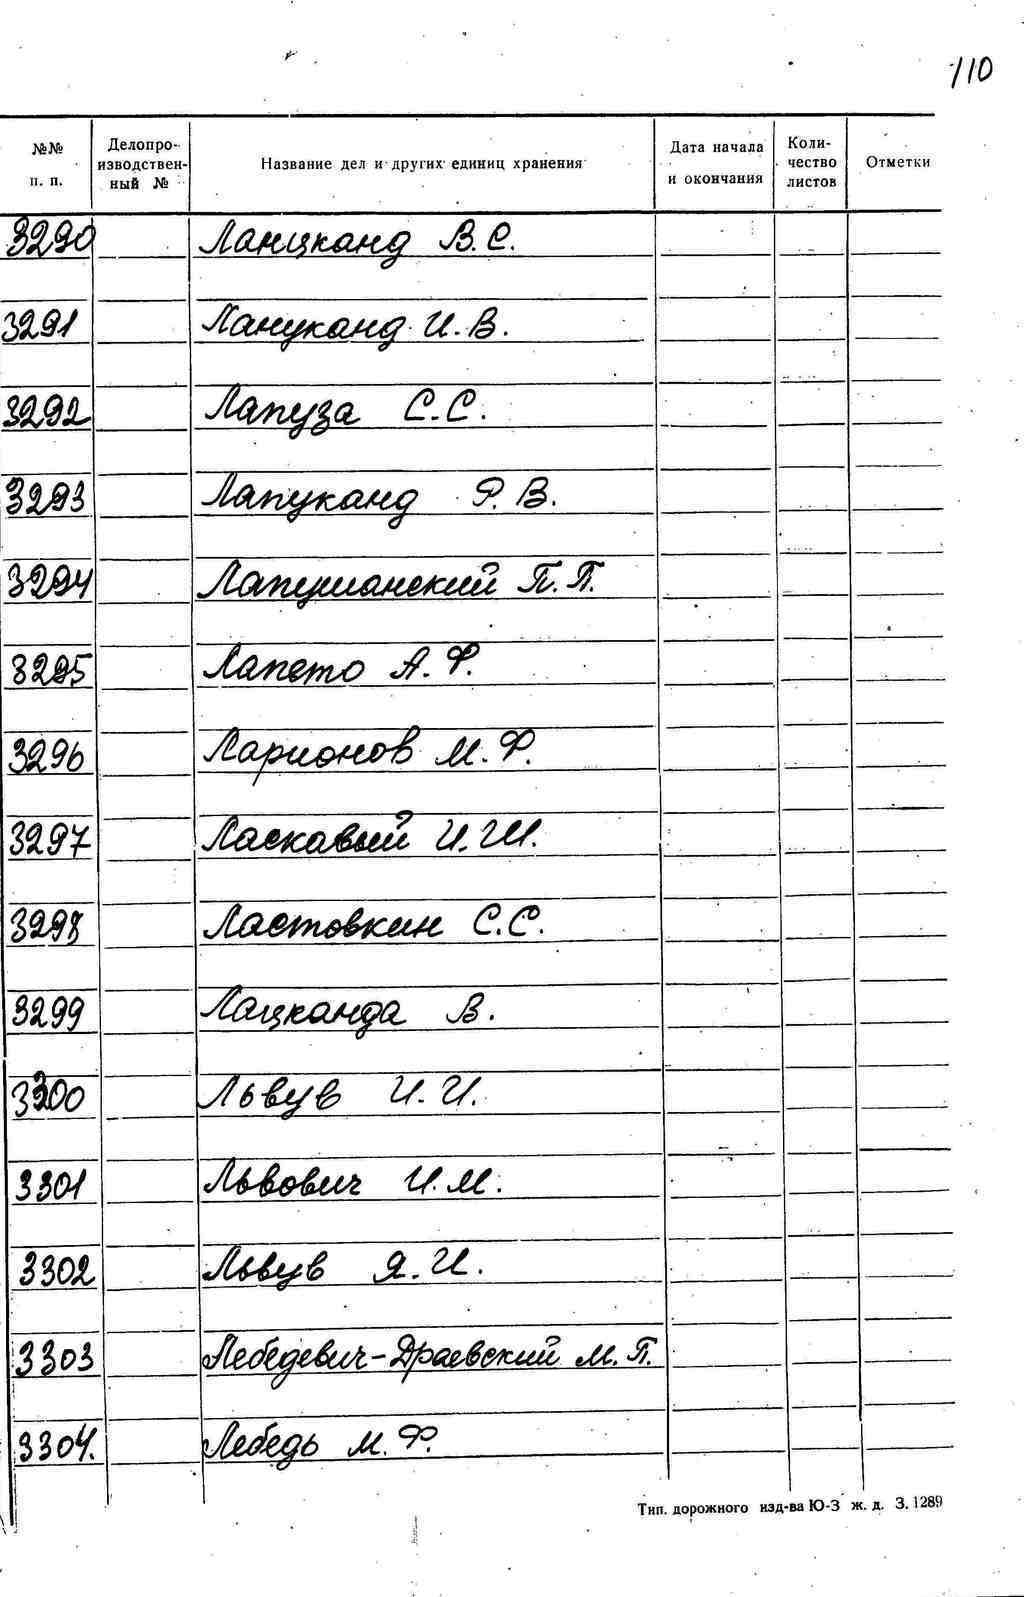 110
№№ п. п. Делопро-изводствен-ный № Название дел и других единиц хранения Дата начала и окончания Коли-чество листов Отметки
3290 Ланцканд В.С.
3291 Лануканд И.В.
3292 Лапуза С.С.
3293 Лапуканд Р.В.
3294 Лапушанский П.П.
3295 Лапето А.Ф.
3296 Ларионов М.Ф.
3297 Ласкавый И.Ш.
3298 Ластовкин С.С.
3299 Лацканда В.
3300 Львув И.И.
3301 Львович И.М.
3302 Львув Я.И.
3303 Лебедевич-Драевский М.П.
3304. Лебедь М.Ф.
Тип. дорожного изд-ва Ю-З ж. д. З. 1289